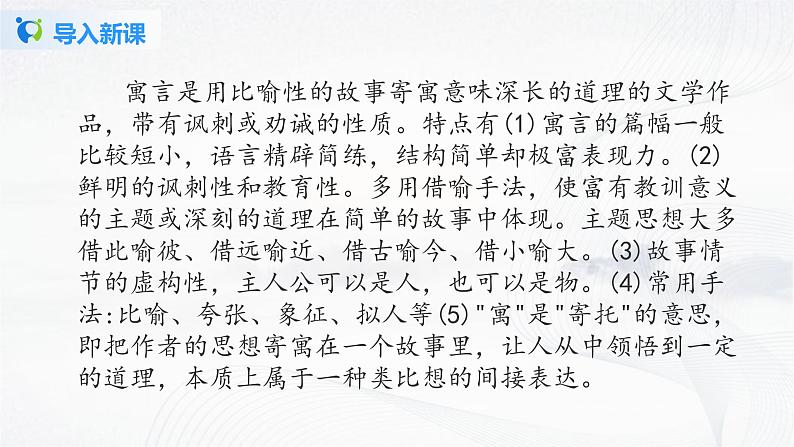 导入新课
寓言是用比喻性的故事寄寓意味深长的道理的文学作
品，带有讽刺或劝诫的性质。特点有(1)寓言的篇幅一般
比较短小，语言精辟简练，结构简单却极富表现力。(2)
鲜明的讽刺性和教育性。多用借喻手法，使富有教训意义
的主题或深刻的道理在简单的故事中体现。主题思想大多
借此喻彼、借远喻近、借古喻今、借小喻大。(3)故事情
节的虚构性，主人公可以是人，也可以是物。(4)常用手
法:比喻、夸张、象征、拟人等(5)"寓"是"寄托"的意思，
即把作者的思想寄寓在一个故事里，让人从中领悟到一定
的道理，本质上属于一种类比想的间接表达。